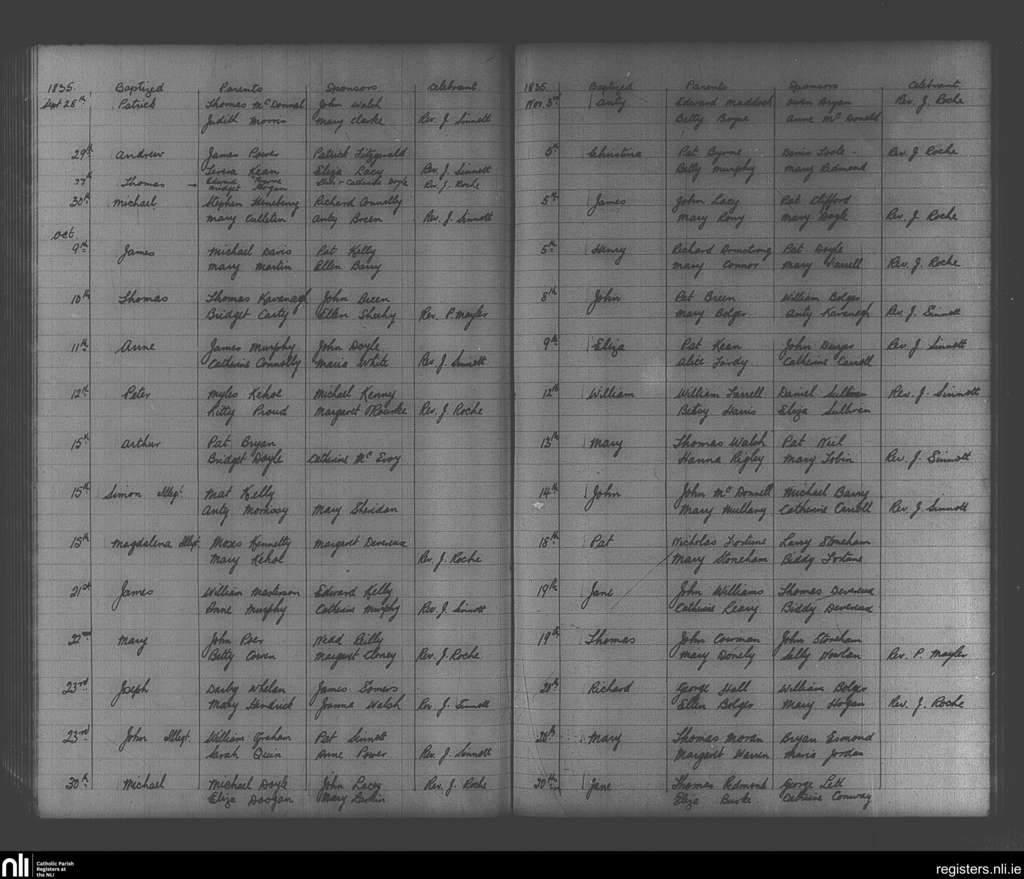 1835. Baptized Parents Sponsors Celebrant
Sept 28th Patrick Thomas McDonnal John Walsh
Judith Morris Mary Clarke Rev. J. Sinnott
29th Andrew James Power Patrick Fitzgerald
Teresa Kean Eliza Lacy Rev. J. Sinnott
Thomas Edward Bridget Catherine Doyle Rev. J. Roche
30th Michael Stephen Richard Connolly
Mary Culleton Anty Breen Rev. J. Sinnott
Oct
9th James Michael Davis Pat Kelly
Mary Martin Ellen Barry
10th Thomas Thomas Kavanagh John Breen
Bridget Carty Ellen Sheehy Rev. P. Mayler
11th Anne James Murphy John Doyle
Catherine Connolly Maria White Rev. J. Sinnott
12th Peter Myles Kehol Michael Kenny
Kitty Proud Margaret O'Rourke Rev. J. Roche
15th Arthur Pat Bryan
Bridget Doyle Catherine McEvoy
15th Simon Illegt. Mat Kelly
Anty Morrissy Mary Sheridan
15th Magdalena Illegt. Moses Kennelly Margaret Devereux
Mary Kehol Rev. J. Roche
21st James William Masterson Edward Kelly
Anne Murphy Catherine Murphy Rev. J. Sinnott
22nd Mary John Poer Nedd Billy
Betty Cowen Margaret Cloney Rev. J. Roche
23rd Joseph Darby Whelan James Somers
Mary Hendrick Joanna Walsh Rev. J. Sinnott
23rd John Illegt. William Graham Pat Sinnott
Sarah Quin Anne Power Rev. J. Sinnott
30th Michael Michael Doyle John Lacey Rev. J. Roche
Eliza Doogan Mary Larkin
1835. Baptized Parents Sponsors Celebrant
Nov. 3rd Anty Edward Maddock Owen Bryan Rev. J. Roche
Betty Boyne Anne McDonald
5th Christina Pat Byrne Toole Rev J Roche
Betty Murphy Mary Redmond
5th James John Lacy Pat Clifford
Mary Rony Mary Doyle Rev. J. Roche
5th Henry Richard Armstrong Pat Doyle
Mary Connor Mary Farrell Rev. J. Roche
8th John Pat Breen William Bolger
Mary Bolger Anty Kavanagh Rev. J. Sinnott
9th Eliza Pat Kean John Rev. J. Sinnott
Alice Catherine Carroll
12th William William Farrell Daniel Sullivan Rev. J. Sinnott
Betsy Harris Eliza Sullivan
13th Mary Thomas Walsh Pat Neil
Hanna Rigley Mary Tobin Rev. J. Sinnott
14th John John McDonnell Michael Barry
Mary Mullany Catherine Carroll Rev. J. Sinnott
18th Pat Nicholas Fortune Larry Stoneham
Mary Stoneham Biddy Fortune
19th Jane John Williams Thomas Devereux
Catherine Leary Biddy Devereux
19th Thomas John Cowman John Stoneham
Mary Donely Silly Nowlan Rev. P. Mayler
28th Richard George Hall William Bolger
Ellen Bolger Mary Hogan Rev. J. Roche
28th Mary Thomas Moran Bryan Esmond
Margaret Warren Maria Jordan
30th Jane Thomas Redmond George Lett
Eliza Burke Catherine Conway
nli Catholic Parish
Registers at
the NLI
registers.nli.ie